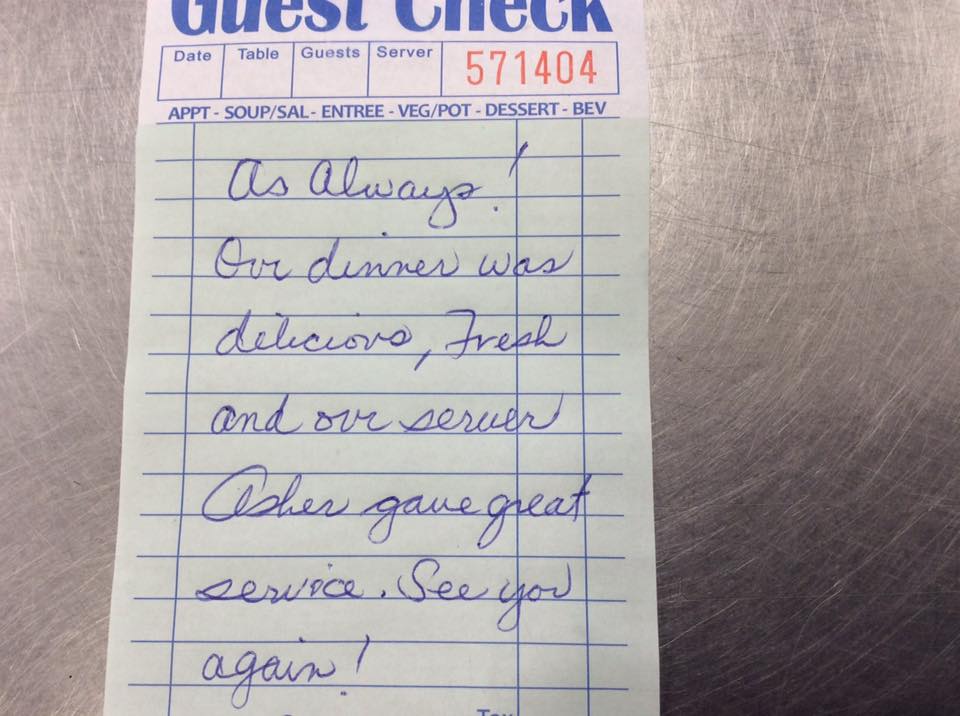 Guest Check
Date Table Guests Server 571404
APPT - SOUP/SAL - ENTREE - VEG/POT - DESSERT - BEV
As Always!
Our dinner was
delicious, Fresh
and our server
Asher gave great
service. See you
again!
Tax